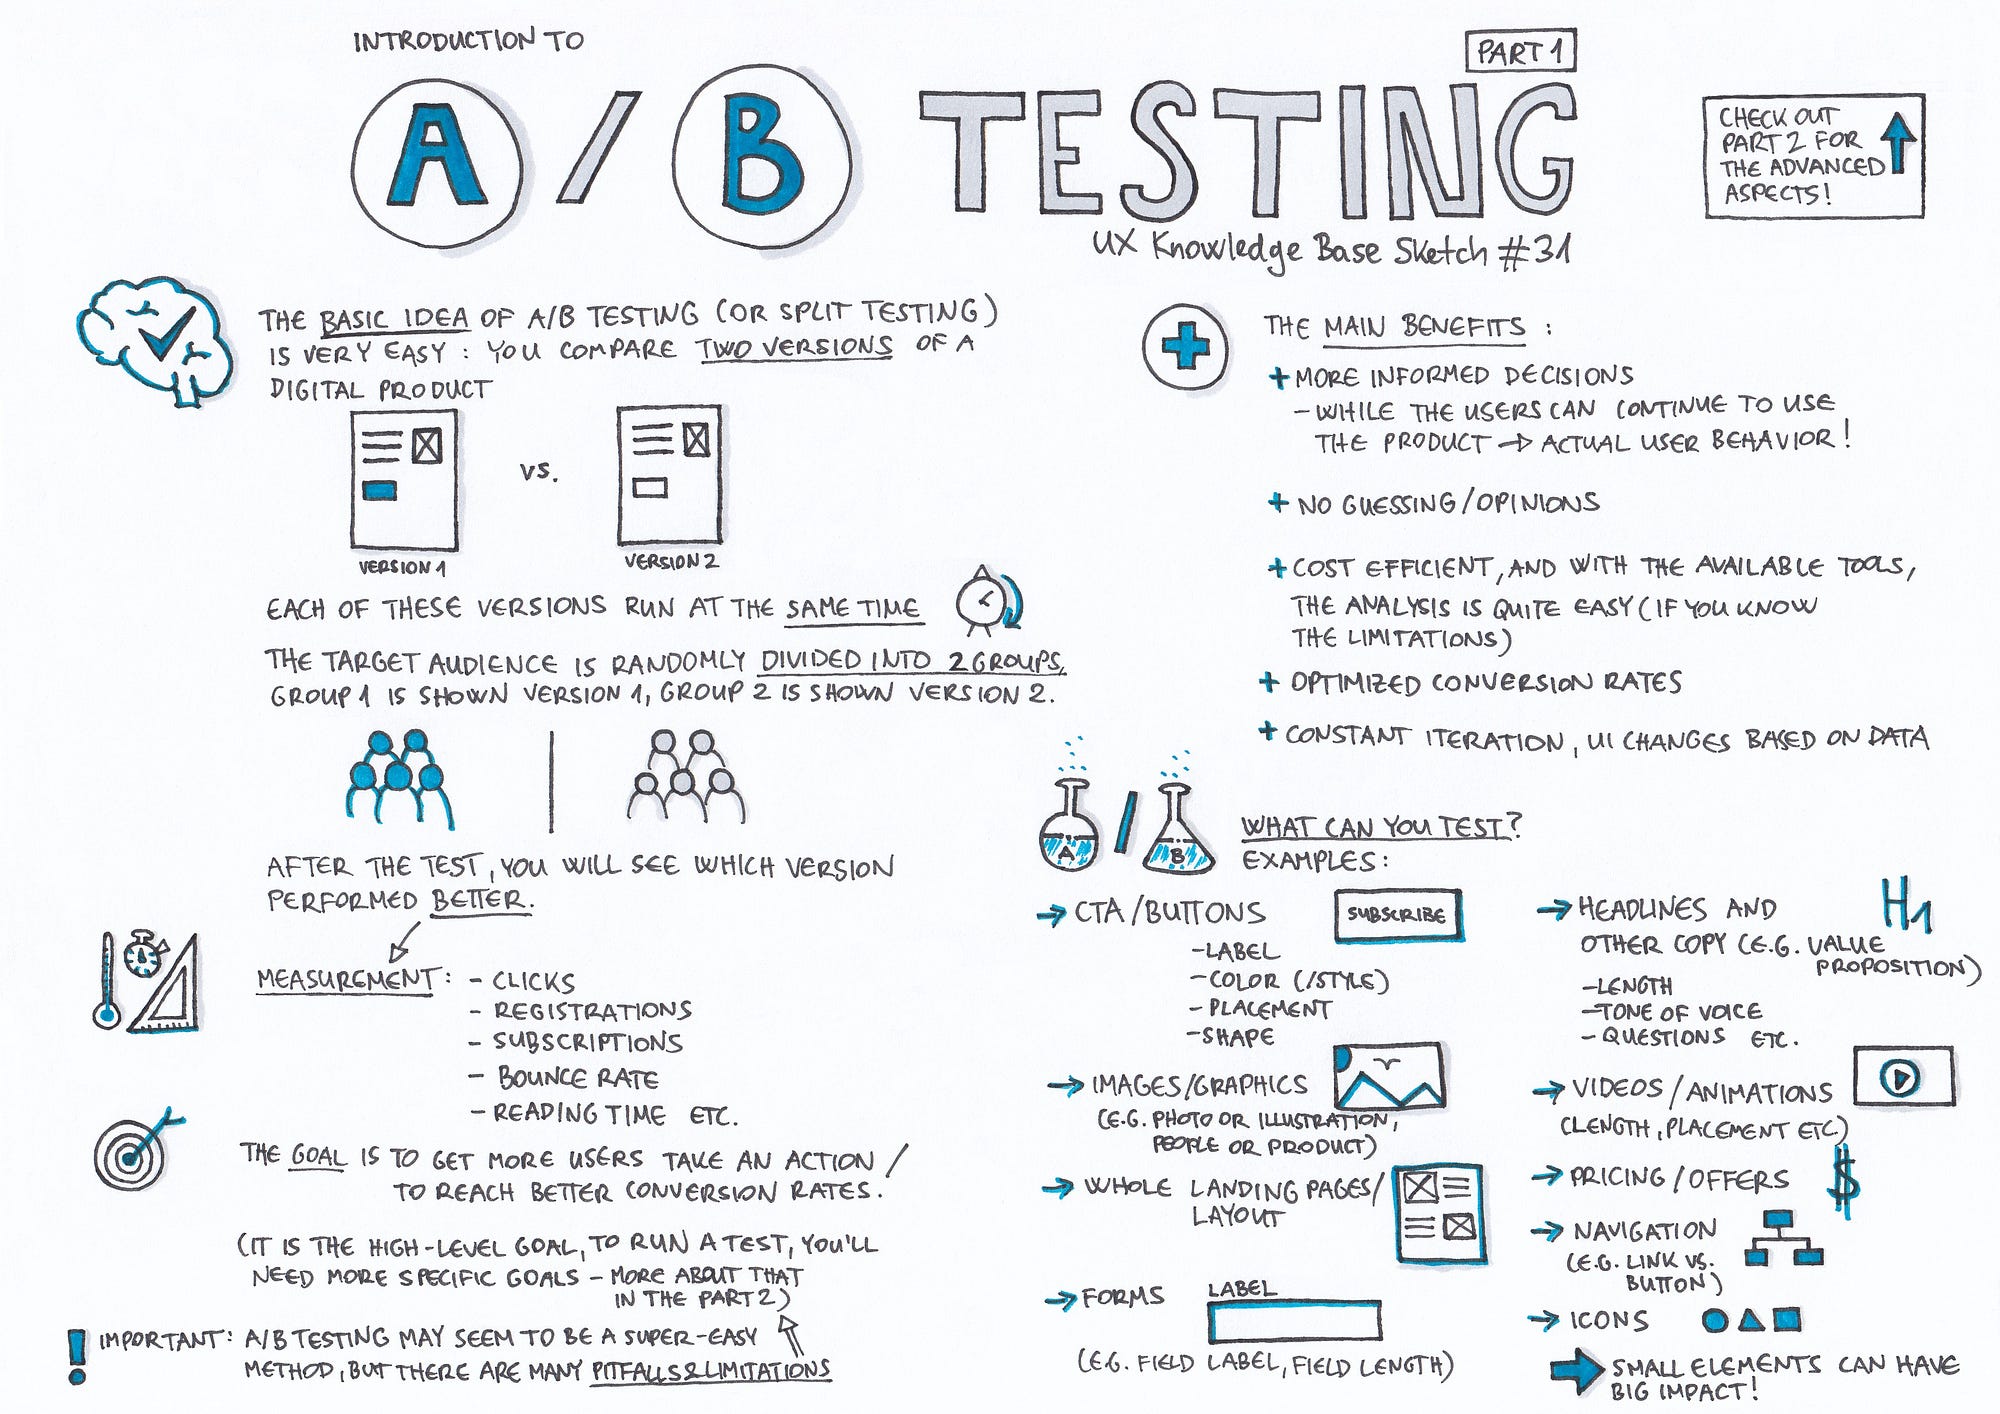 INTRODUCTION TO
PART 1
A / B TESTING
UX Knowledge Base Sketch #31
CHECK OUT
PART 2 FOR
THE ADVANCED
ASPECTS!
THE BASIC IDEA OF A/B TESTING (OR SPLIT TESTING)
IS VERY EASY: YOU COMPARE TWO VERSIONS OF A
DIGITAL PRODUCT
VS.
VERSION 1
VERSION 2
EACH OF THESE VERSIONS RUN AT THE SAME TIME
THE TARGET AUDIENCE IS RANDOMLY DIVIDED INTO 2 GROUPS,
GROUP 1 IS SHOWN VERSION 1, GROUP 2 IS SHOWN VERSION 2.
AFTER THE TEST, YOU WILL SEE WHICH VERSION
PERFORMED BETTER.
MEASUREMENT: - CLICKS
- REGISTRATIONS
- SUBSCRIPTIONS
- BOUNCE RATE
- READING TIME ETC.
THE GOAL IS TO GET MORE USERS TAKE AN ACTION /
TO REACH BETTER CONVERSION RATES.
(IT IS THE HIGH-LEVEL GOAL, TO RUN A TEST, YOU'LL
NEED MORE SPECIFIC GOALS - MORE ABOUT THAT
IN THE PART 2)
! IMPORTANT: A/B TESTING MAY SEEM TO BE A SUPER-EASY
METHOD, BUT THERE ARE MANY PITFALLS & LIMITATIONS
THE MAIN BENEFITS:
+ MORE INFORMED DECISIONS
- WHILE THE USERS CAN CONTINUE TO USE
THE PRODUCT → ACTUAL USER BEHAVIOR!
+ NO GUESSING/OPINIONS
+ COST EFFICIENT, AND WITH THE AVAILABLE TOOLS,
THE ANALYSIS IS QUITE EASY (IF YOU KNOW
THE LIMITATIONS)
+ OPTIMIZED CONVERSION RATES
+ CONSTANT ITERATION, UI CHANGES BASED ON DATA
A / B
WHAT CAN YOU TEST?
EXAMPLES:
→ CTA/BUTTONS
SUBSCRIBE
- LABEL
- COLOR (/STYLE)
- PLACEMENT
- SHAPE
→ IMAGES/GRAPHICS
(E.G. PHOTO OR ILLUSTRATION,
PEOPLE OR PRODUCT)
→ WHOLE LANDING PAGES/
LAYOUT
→ FORMS
LABEL
(E.G. FIELD LABEL, FIELD LENGTH)
→ HEADLINES AND
H1
OTHER COPY (E.G. VALUE
PROPOSITION)
- LENGTH
- TONE OF VOICE
- QUESTIONS ETC.
→ VIDEOS/ANIMATIONS
(LENGTH, PLACEMENT ETC)
→ PRICING/OFFERS
$
→ NAVIGATION
(E.G. LINK VS.
BUTTON)
→ ICONS
→ SMALL ELEMENTS CAN HAVE
BIG IMPACT!